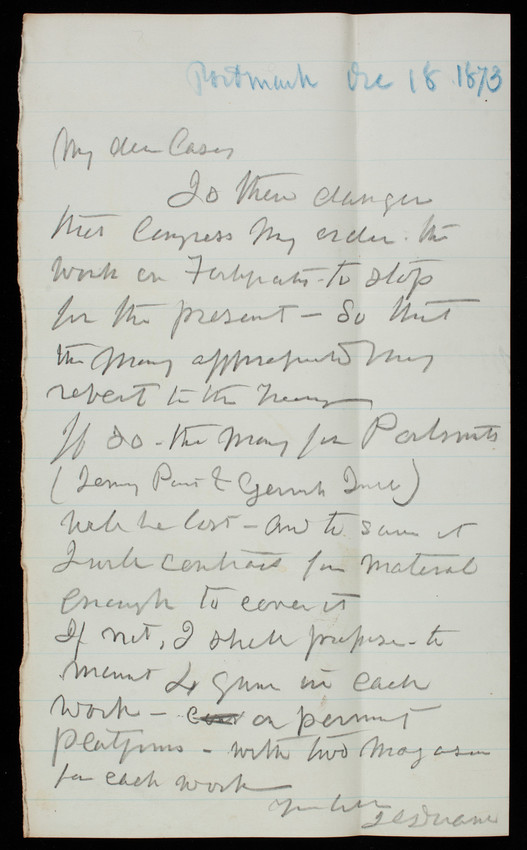 Portsmouth Dec 18 1873
My dear Casey
Is there danger
that Congress may order the
work on Fortifications to stop
for the present – So that
the money appropriated may
revert to the Treasury
If so – the money for Portsmouth
(Jerrys Point & Gerrish Island)
will be lost – and to save it
I will contract for material
enough to cover it
If not, I shall propose to
mount 4 guns in each
work – on permanent
platforms – with two magazines
for each work
Yours truly
J C Duane